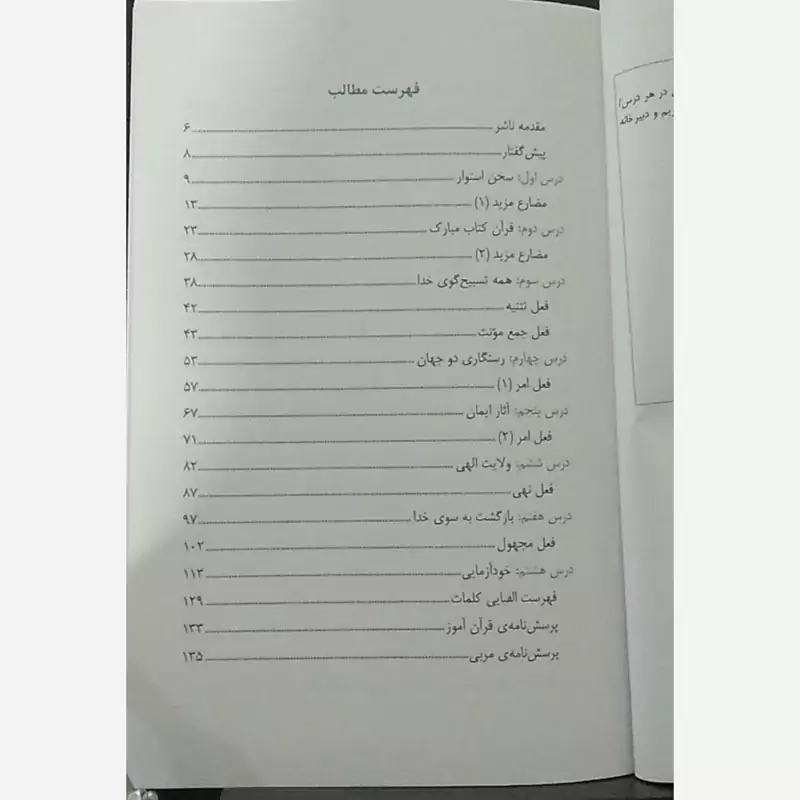 فهرست مطالب
مقدمه ناشر ۶
پیش‌گفتار ۸
درس اول: سخن استوار ۹
مضارع مزید (۱) ۱۳
درس دوم: قرآن کتاب مبارک ۲۳
مضارع مزید (۲) ۲۸
درس سوم: همه تسبیح‌گوی خدا ۳۸
فعل تثنیه ۴۲
فعل جمع مؤنث ۴۳
درس چهارم: رستگاری دو جهان ۵۳
فعل امر (۱) ۵۷
درس پنجم: آثار ایمان ۶۷
فعل امر (۲) ۷۱
درس ششم: ولایت الهی ۸۲
فعل نهی ۸۷
درس هفتم: بازگشت به سوی خدا ۹۷
فعل مجهول ۱۰۲
درس هشتم: خودآزمایی ۱۱۳
فهرست الفبایی کلمات ۱۲۹
پرسش‌نامه‌ی قرآن آموز ۱۳۳
پرسش‌نامه‌ی مربی ۱۳۵
در هر درس/
یم و دبیرخانه